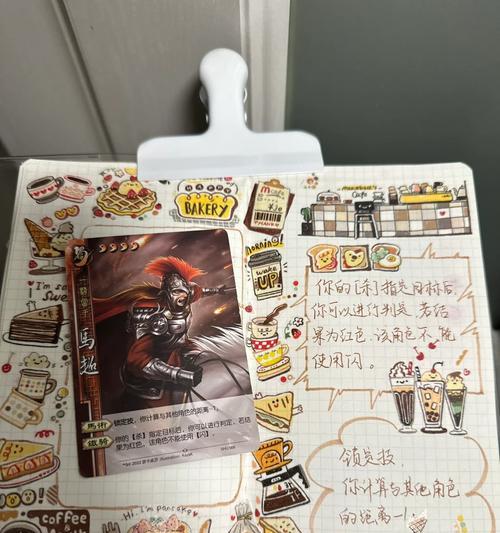 HAPPY
BAKERY
Cafe
morning!
wake
UP
I'm so
Swee
蜀
馬超
馬術
鐵騎
锁定技，你计算与其他角色的距离-1。
你的【杀】指定目标后，你可以进行判定，若结
果为红色，该角色不能使用【闪】。
你的[杀]指定目标后
你可以进行判定,若结
果为红色,该角色不能
使用闪。
锁定技,
你计算与其他角色
的距离-1
coffee
Hi. I'm pancake